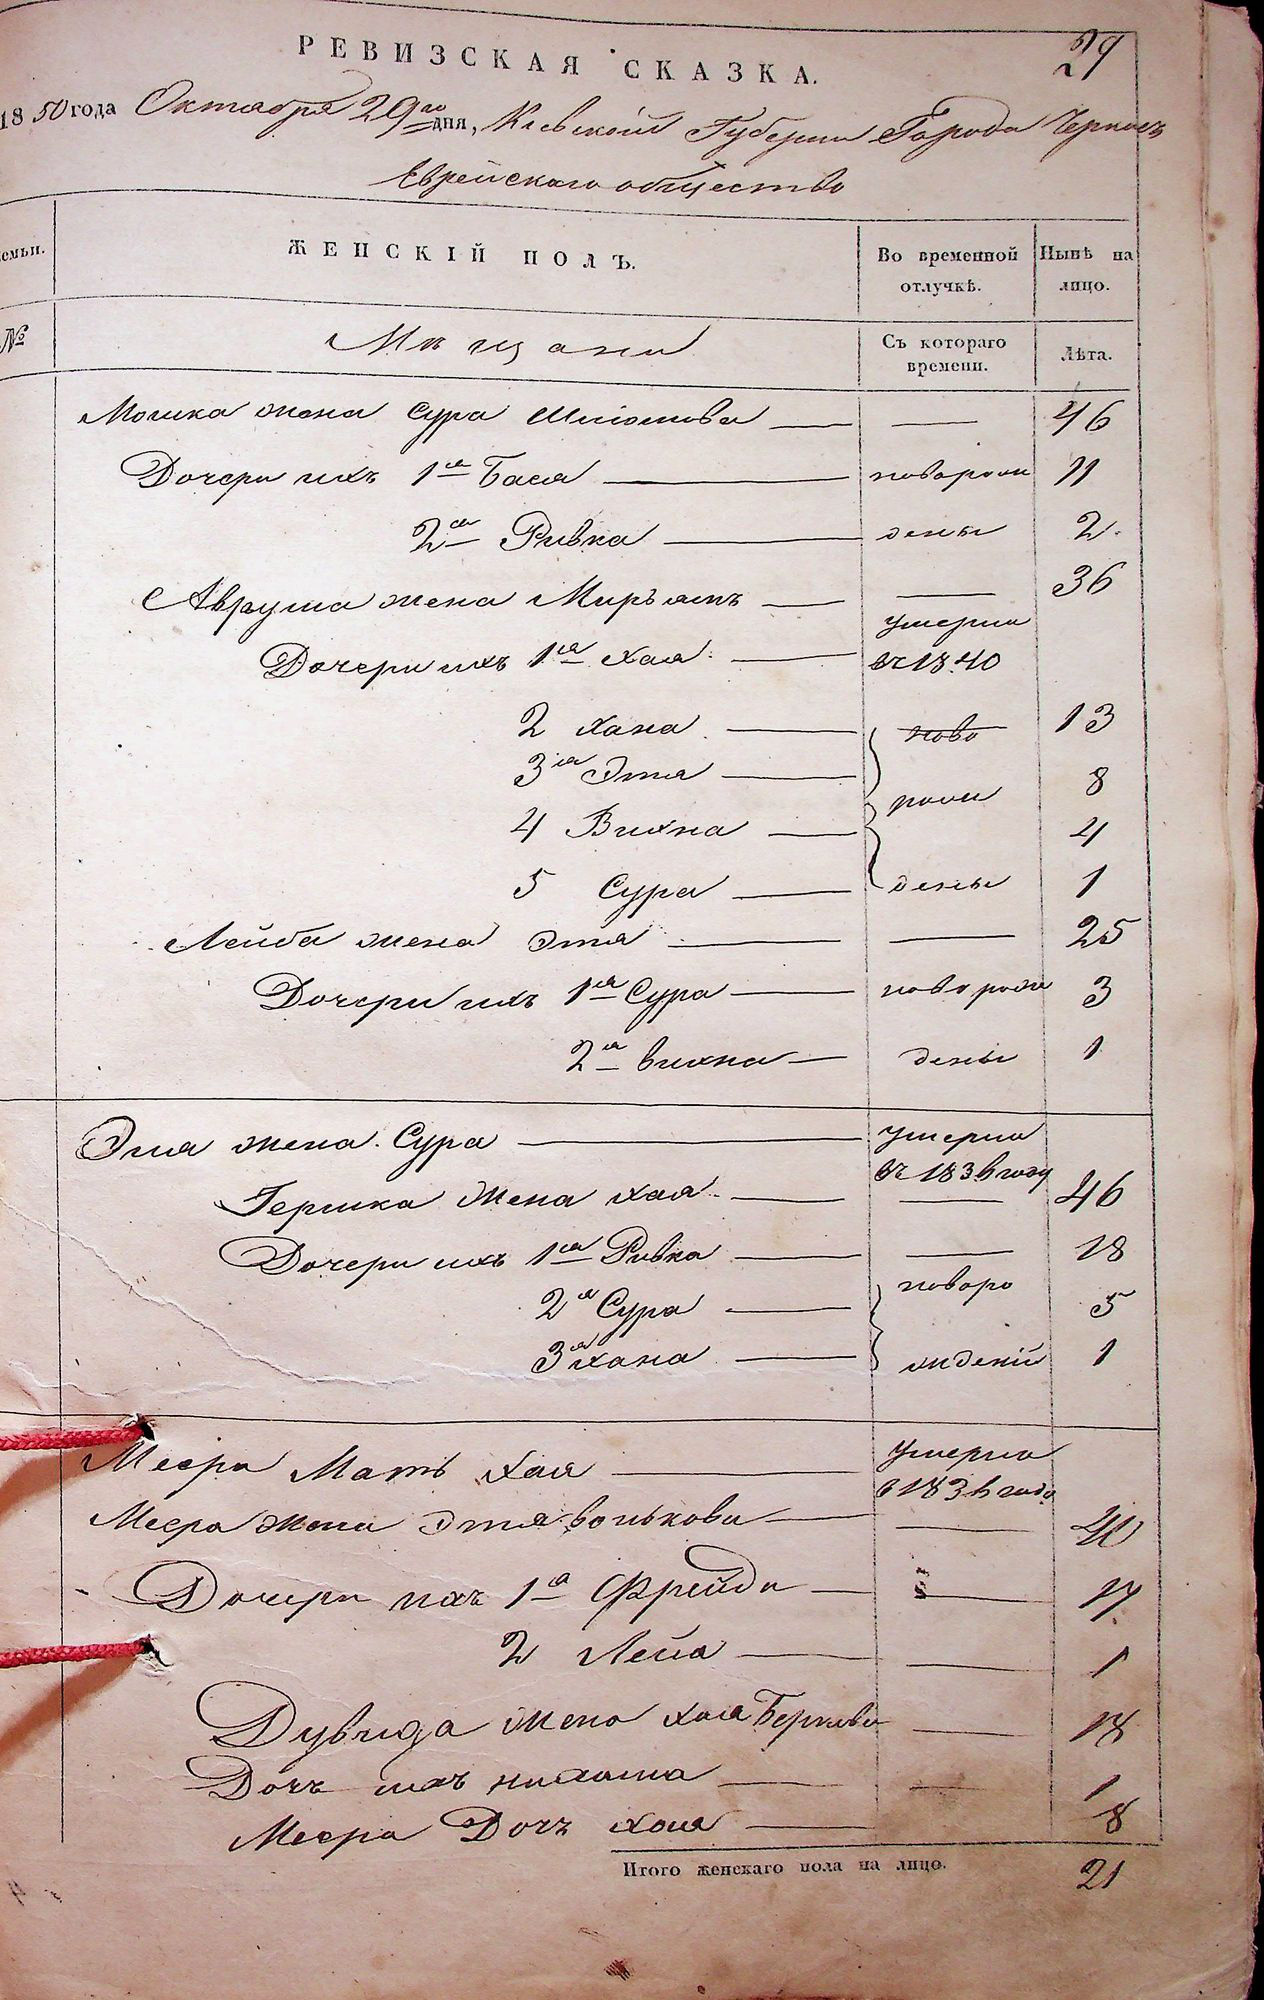 29
РЕВИЗСКАЯ СКАЗКА.
1850 года Октября 29го дня, Кіевской Губерніи Города Черкасъ
Еврейскаго общество
семьи. ЖЕНСКІЙ ПОЛЪ. Во временной отлучкѣ. Нынѣ на лицо.
№ Мѣщани Съ котораго времени. Лѣта.
Мошка жена Сура 46
Дочери ихъ 1я Бася новорож 11
2я Ривка дены 2.
Аврума жена Мирьямъ 36
умерли
Дочери ихъ 1я Хая въ 1840
2 Хана ново 13
3я Этя 8
рож
4 Вихна 4
5 Сура дены 1
Лейба жена Этя 25
Дочери ихъ 1я Сура новорож 3
2я Вихна дены 1
жена Сура умерла
въ 1836 году
Гершка жена Хая 46
Дочери ихъ 1я Ривка 18
новоро
2я Сура 5
3я Хана жденіи 1
Меера Мать Хая умерла
в 1836 году
Меера жена Этя Волькова 40
Дочери ихъ 1я Фрейда 17
2 Лейа 1
Дувида жена Хая Беркова 18
Дочь ихъ 1
Меера Дочь Хая 8
Итого женскаго пола на лицо. 21